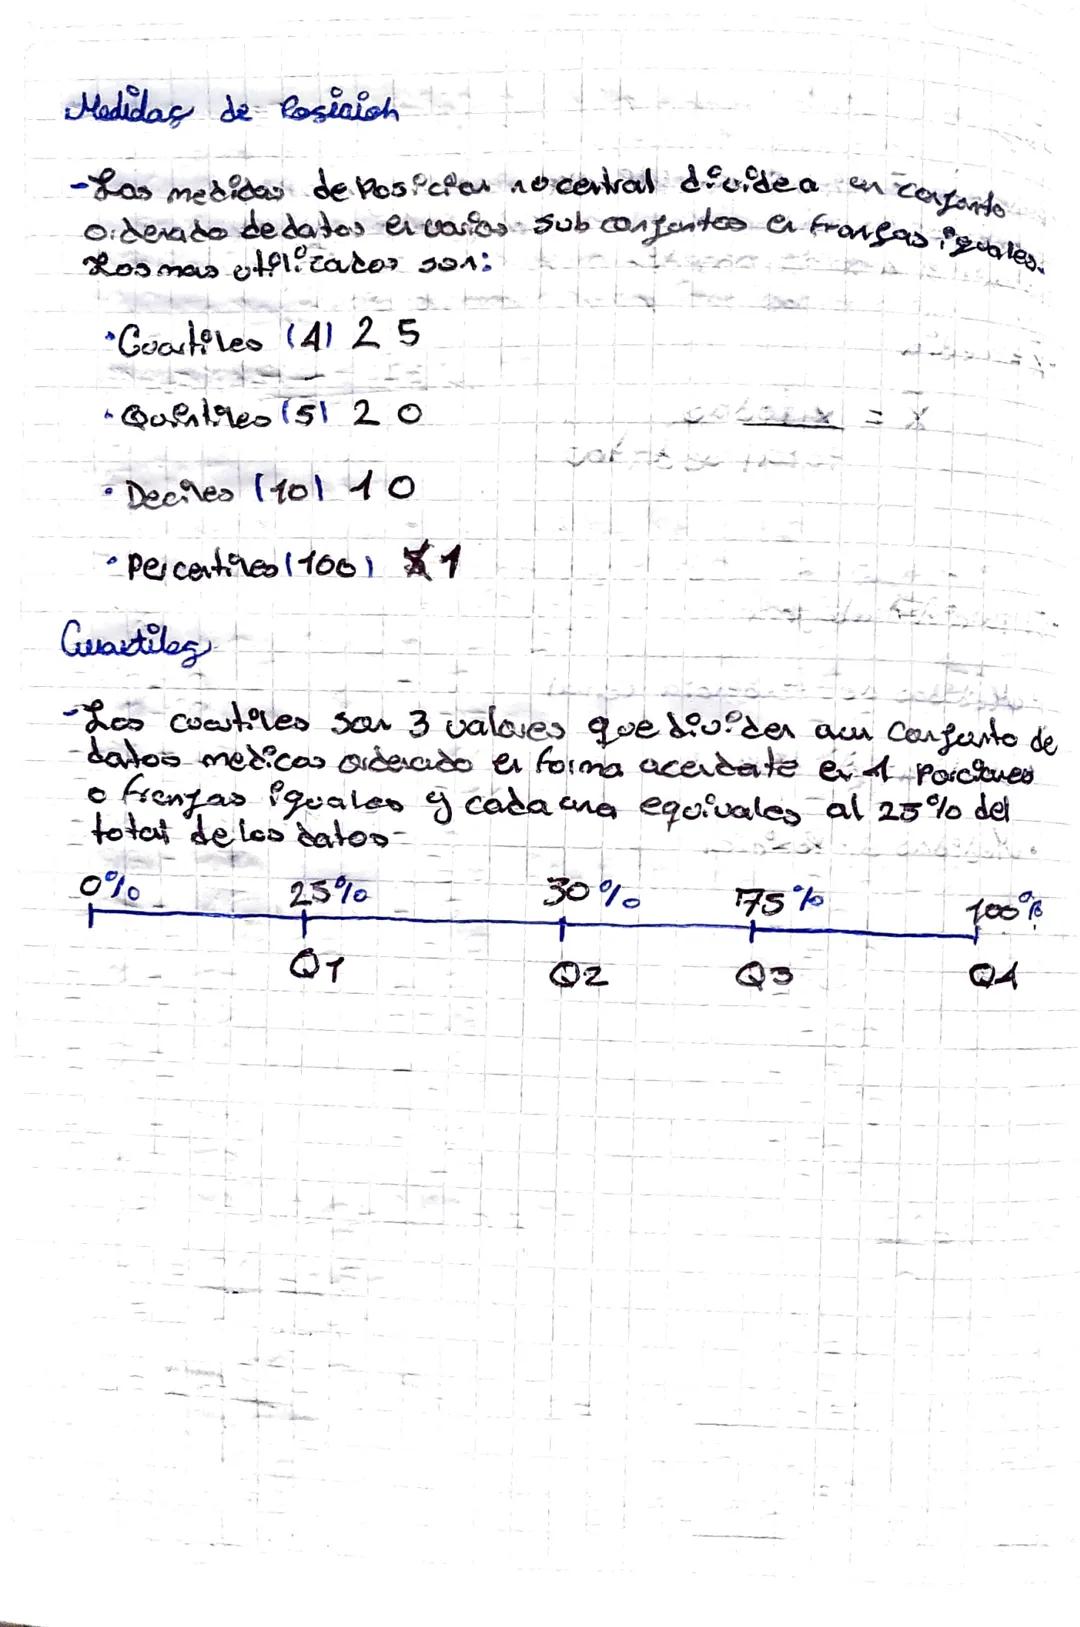 Medidas de Posición
-Las medidas de posición no central divide a un conjunto
ordenado de datos en varios subconjuntos en franjas iguales.
Los mas utilizados son:
• Cuartiles (4) 25
• Quintiles (5) 20
• Deciles (10) 10
• Percentiles (100) 1
Cuartiles
-Los cuartiles son 3 valores que dividen a un conjunto de
datos medicos ordenado en forma acendate en 4 porciones
o franjas iguales y cada una equivales al 25% del
total de los datos
0% 25% 30% 75% 100%
Q1 Q2 Q3 Q4